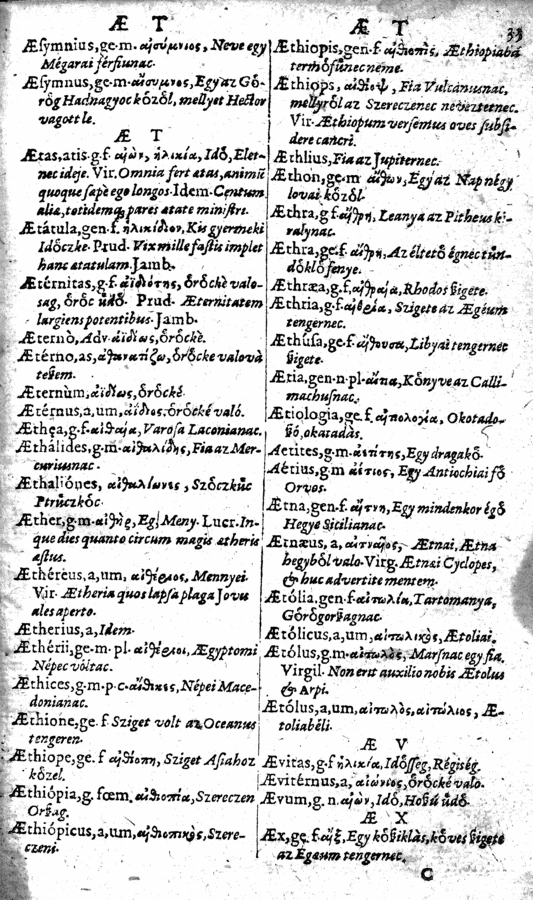 Æ T
Æsymnius, ge. m. αἰσύμνιος, Neve egy
Mégarai férfiunac.
Æsymnus, ge. m. αἴσυμνος, Egy az Gö-
rög Hadnagyoc közöl, mellyet Hector
vagott le.
Æ T
Ætas, atis. g. f. αἰών, ἡλικία, Idö, Elet-
nec ideje. Vir. Omnia fert ætas, animũ
quoque sæpe ego longos. Idem. Centum
alia, totidemq́; pares ætate ministri.
Ætátula, gen. f. ἡλικίδιον, Kis gyermeki
Idöczke. Prud. Vix mille fastis implet
hanc ætatulam. Jamb.
Ætérnitas, g. f. ἀϊδιότης, öröckè valo-
sag, öröc üdö. Prud. Æternitatem
largiens potentibus. Jamb.
Æternò, Adv. ἀϊδίως, öröckè.
Ætérno, as, ἀθανατίζω, öröcke valová
teßem.
Æternùm, ἀϊδίως, öröcké.
Ætérnus, a, um, ἀΐδιος, öröcké való.
Æthęa, g. f. αἰθαία, Varosa Laconianac.
Æthálides, g. m. αἰθαλίδης, Fia az Mer-
curiusnac.
Æthaliónes, αἰθαλίωνες, Szöczküc
Ptrüczköc.
Æther, g. m. αἰθὴρ, Eg, Meny. Lucr. In-
que dies quanto circum magis ætheris
æstus.
Æthéreus, a, um, αἰθέριος, Mennyei.
Vir. Ætheria quos lapsa plaga Jovis
ales aperto.
Ætherius, a, Idem.
Æthérii, ge. m. pl. αἰθέριοι, Ægyptomi
Népec vóltac.
Æthices, g. m. p. c. αἴθικες, Népei Mace-
donianac.
Æthione, ge. f. Sziget volt az Oceanus
tengeren.
Æthiope, ge. f. αἰθιόπη, Sziget Asiahoz
közel.
Æthiópia, g. fœm. αἰθιοπία, Szereczen
Orßag.
Æthiópicus, a, um, αἰθιοπικὸς, Szere-
czeni.
Æ T
33
Æthiopis, gen. f. αἰθιοπὶς, Æthiopiabā
termö fünec neme.
Æthiops, αἰθίοψ, Fia Vulcanusnac,
mellyröl az Szereczenec neveztetnec.
Vir. Æthiopum versemus oves subsi-
dere cancri.
Æthlius, Fia az Jupiternec.
Æthon, ge. m. αἴθων, Egy az Nap négy
lovai közöl.
Æthra, g. f. αἴθρη, Leanya az Pitheus ki-
ralynac.
Æthra, ge. f. αἴθρη, Az éltetö égnec tün-
döklö fenye.
Æthræa, g. f. αἰθραία, Rhodos ßigete.
Æthria, g. f. αἰθρία, Szigete az Ægéum
tengernec.
Æthúsa, ge. f. αἴθουσα, Libyai tengernec
ßigete.
Ætia, gen. n. pl. αἴτια, Könyve az Calli-
machusnac.
Ætiologia, ge. f. αἰτιολογία, Okotado-
ßó, okatadàs.
Aetites, g. m. ἀετίτης, Egy dragakö.
Aétius, g. m ἀέτιος, Egy Antiochiai fö
Orvos.
Ætna, gen. f. αἴτνη, Egy mindenkor égö
Hegye Sicilianac.
Ætnæus, a, αἰτναῖος, Ætnai, Ætna
hegyböl valo. Virg. Ætnæi Cyclopes,
& huc advertite mentem.
Ætólia, gen. f. αἰτωλία, Tartomanya,
Görögorßagnac.
Ætólicus, a, um, αἰτωλικὸς, Ætoliai.
Ætólus, g. m. αἰτωλὸς, Marsnac egy fia.
Virgil. Non erit auxilio nobis Ætolus
& Arpi.
Ætólus, a, um, αἰτωλὸς, αἰτώλιος, Æ-
toliabéli.
Æ V
Ævitas, g. f ἡλικία, Idösség, Régiség.
Ævitérnus, a, αἰώνιος, öröcké valo.
Ævum, g. n. αἰών, Idö, Hoßú üdö.
Æ X
Æx, ge. f. αἴξ, Egy kößiklàs, köves ßigete
az Egæum tengernec.
C